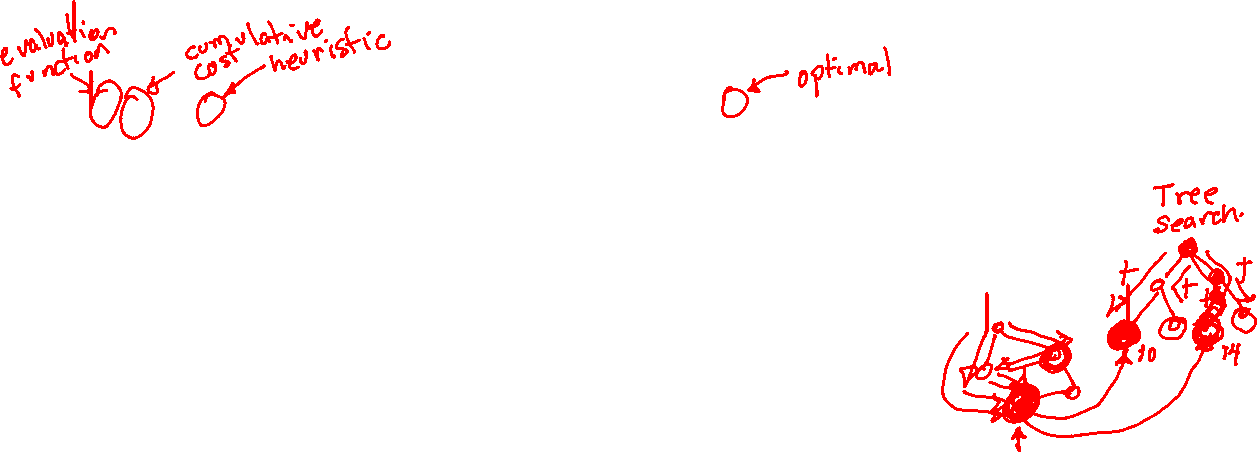 evaluation
function
cumulative
cost
heuristic
optimal
Tree
search.
10
14